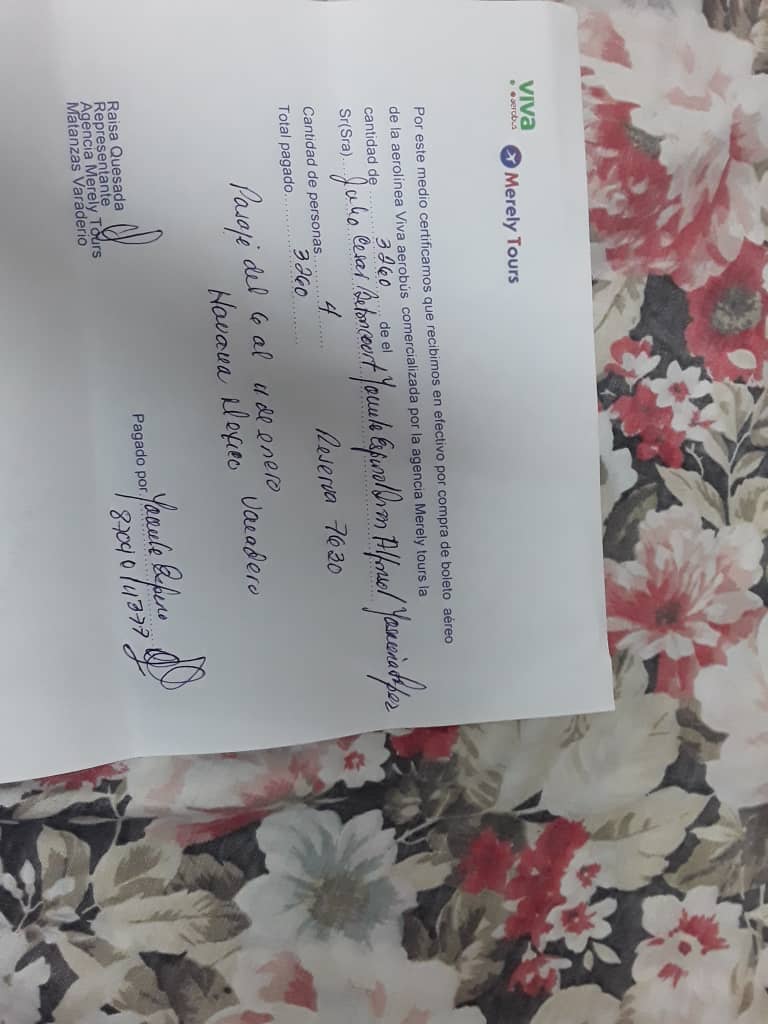 viva
aerobus
Merely Tours
Por este medio certificamos que recibimos en efectivo por compra de boleto aéreo
de la aerolínea Viva aerobús comercializada por la agencia Merely tours la
cantidad de 3260 de el
Sr(Sra) Julio Cesar Betancourt Yamile Espino Alfonso
Cantidad de personas 4 Reserva 7630
Total pagado 3260
Pasaje del 6 al 11 de enero Varadero
Havana Mexico
Pagado por Yamile Espino
Raisa Quesada
Representante
Agencia Merely Tours
Matanzas Varaderio